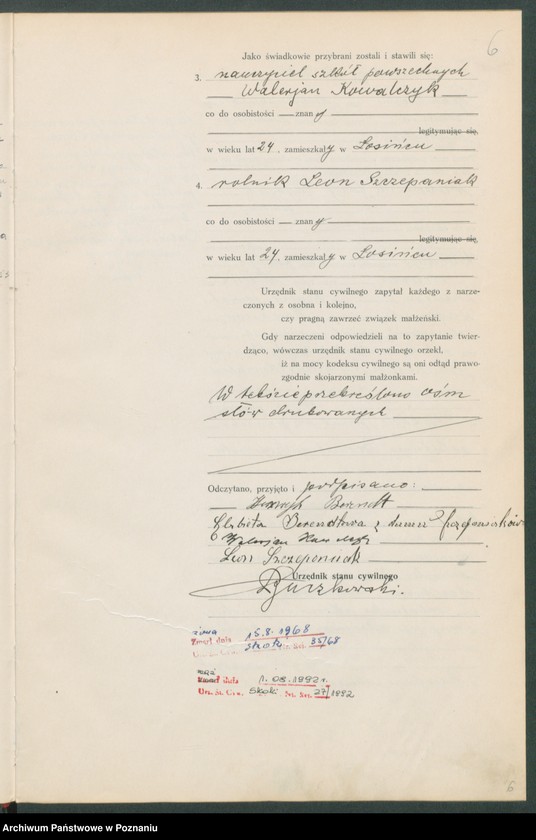 6
Jako świadkowie przybrani zostali i stawili się:
3. nauczyciel szkół powszechnych
Walerjan Kowalczyk
co do osobistości — znany
legitymując się,
w wieku lat 24, zamieszkały w Łosińcu
4. rolnik Leon Szczepaniak
co do osobistości — znany
legitymując się,
w wieku lat 24, zamieszkały w Łosińcu
Urzędnik stanu cywilnego zapytał każdego z narze-
czonych z osobna i kolejno,
czy pragną zawrzeć związek małżeński.
Gdy narzeczeni odpowiedzieli na to zapytanie twier-
dząco, wówczas urzędnik stanu cywilnego orzekł,
iż na mocy kodeksu cywilnego są oni odtąd prawo-
zgodnie skojarzonymi małżonkami.
W tekście przekreślono ośm
słów drukowanych
Odczytano, przyjęto i podpisano:
Berndt
Elżbieta z domu
Walerjan Kowalczyk
Leon Szczepaniak
Urzędnik stanu cywilnego
żona
Zmarł dnia 15.8.1968
Skoki 35/68
mąż
1.08.1892 r.
Urz. St. Cyw. Skoki 27/1892
6
Archiwum Państwowe w Poznaniu